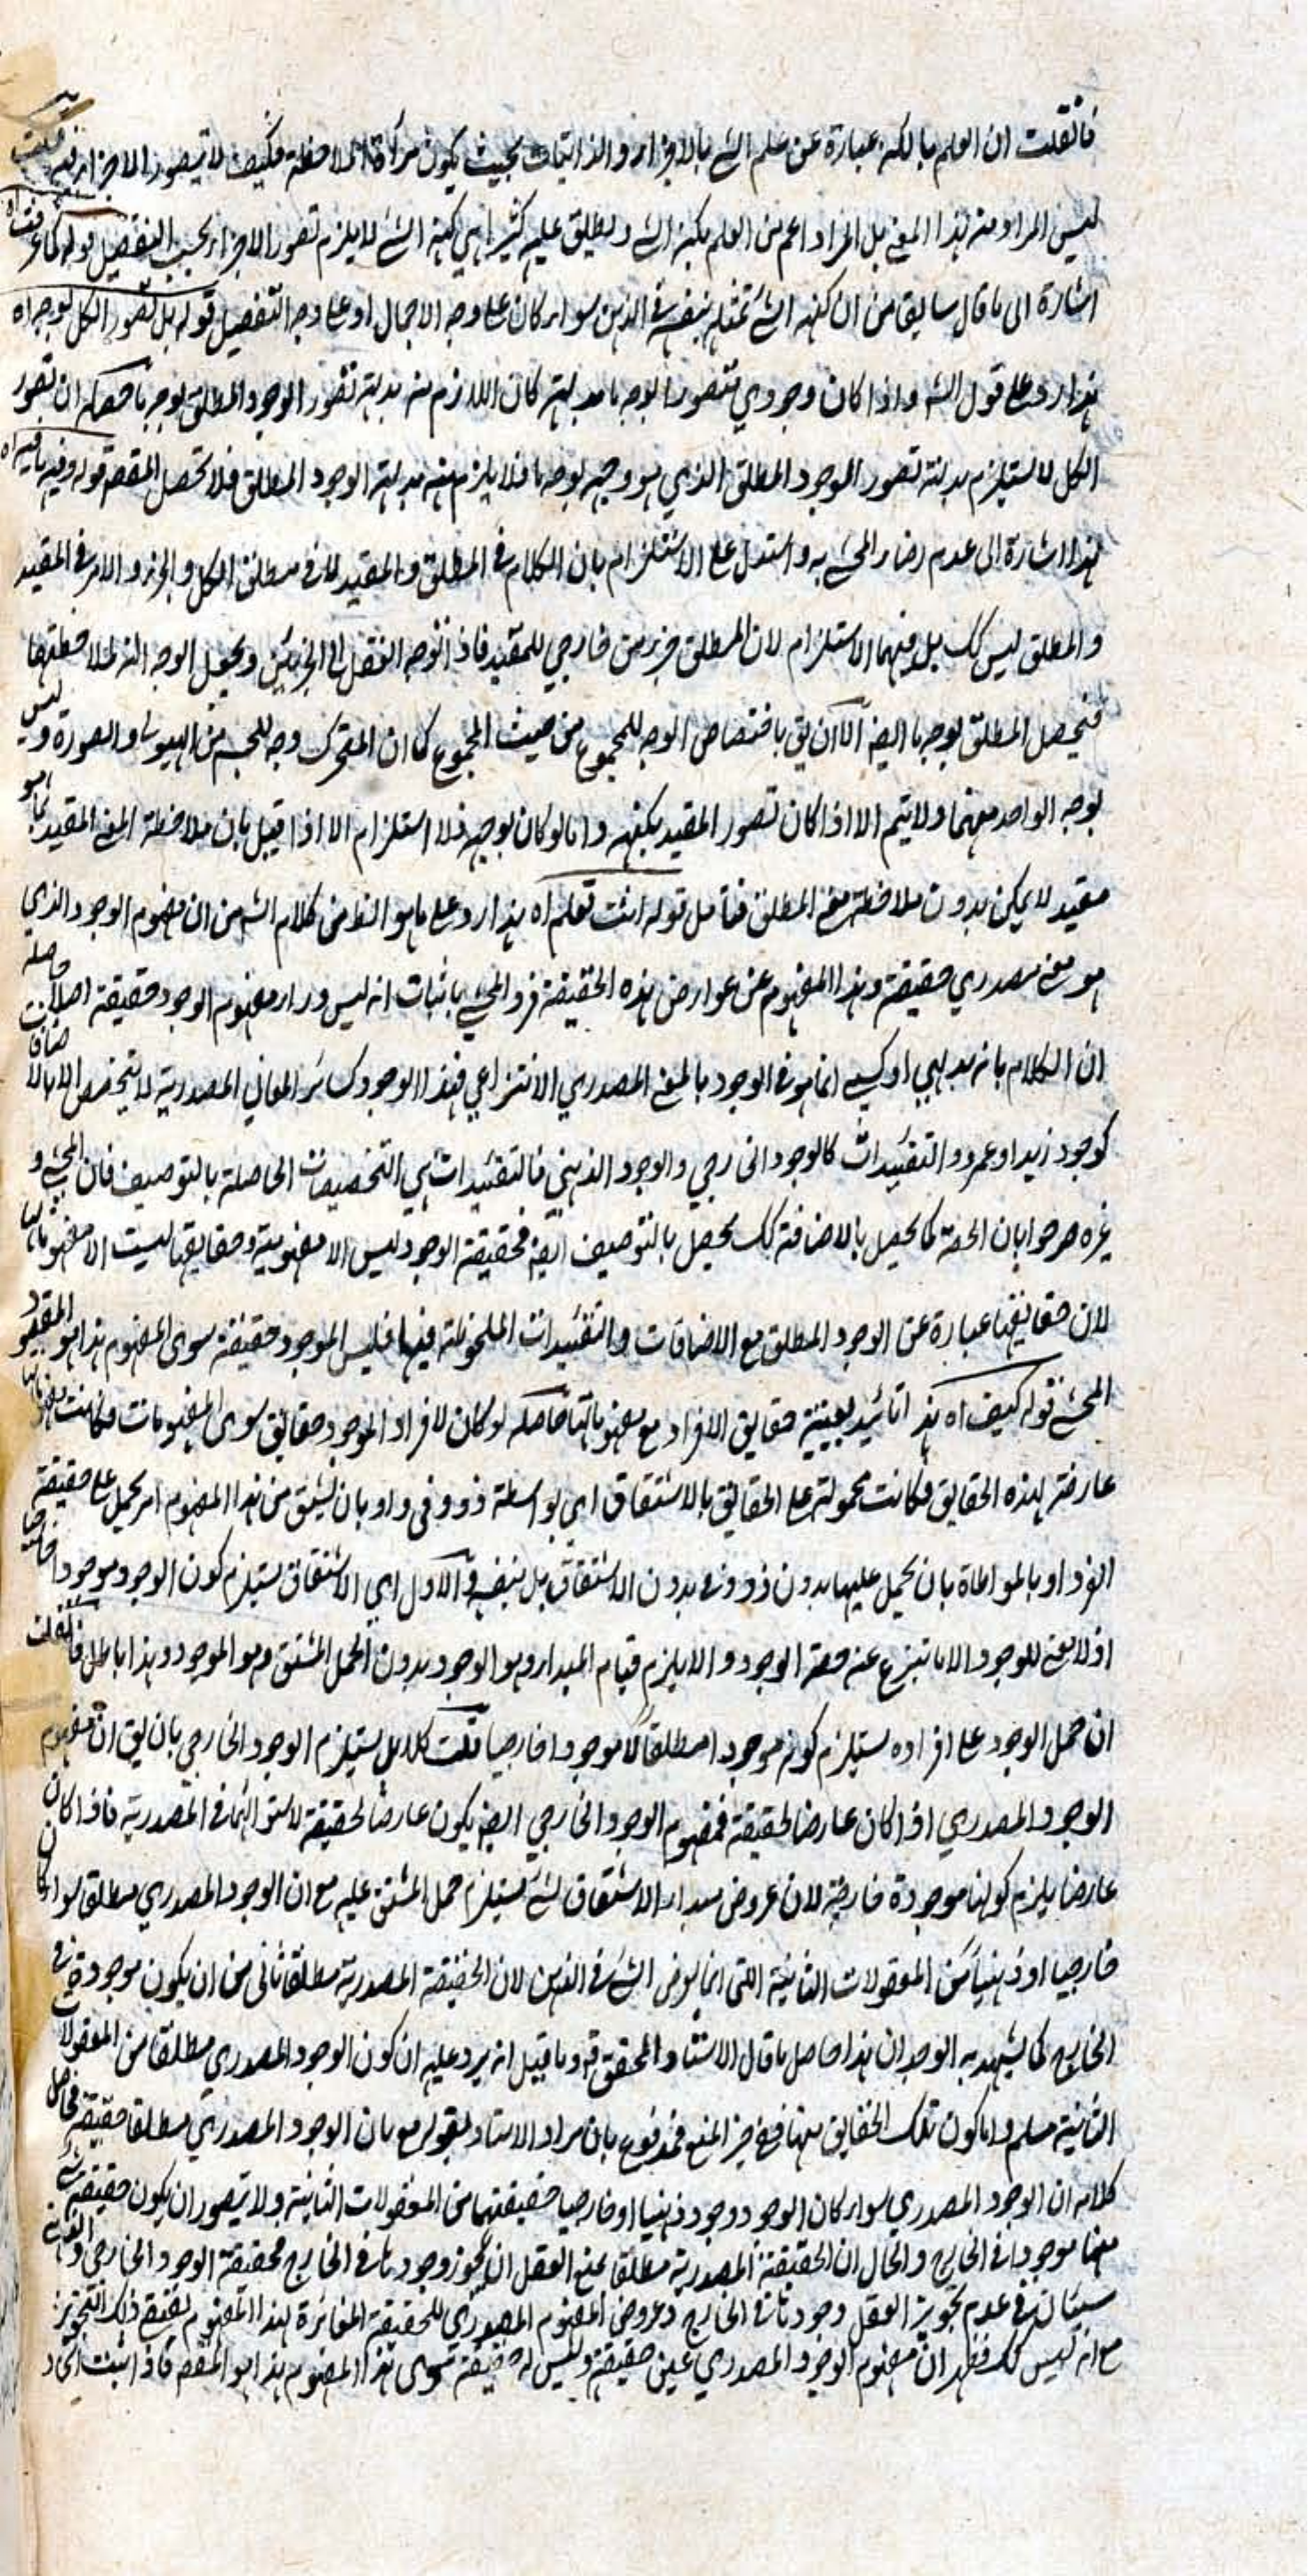 فان قلت ان العلم بالكنه عبارة عن علم الشئ بالاجزاء والذاتيات بحيث يكون مرآة الملاحظة فكيف لا يتصور الاجزاء فيه قلت
ليس المراد منه هذا المعنى بل المراد اعم من العلم بكنه الشئ ويطلق عليه كثيرا هي كنه الشئ لا يلزم تصور الاجزاء بحسب التفصيل قوله كما عرفت اه
اشارة الى ما قال سابقا من ان كنه الشئ تمثله بنفسه في الذهن سواء كان على وجه الاجمال او على وجه التفصيل قوله بل تصور الكل بوجه اه
هذا رد على قول الشه واذا كان وجودي متصورا بوجه ما بديهة كان اللازم منه بديهة تصور الوجود المطلق بوجه ما حاصله ان تصور
الكل لا يستلزم بديهة تصور الوجود المطلق الذي هو وجهه بوجه ما فلا يلزم منه بديهة الوجود المطلق فلا تحصل المقصه قوله وفيه ما فيه اه
هذا اشارة الى عدم رضاء المحشي به واستدل على الاستلزام بان الكلام في المطلق والمقيد لا في مطلق الكل والجزء والامر في المقيد
والمطلق ليس كك بل فيهما الاستلزام لان المطلق جزء من خارجي للمقيد فاذا توجه العقل الى الجزئين ويجعل الوجه الة لملاحظتهما
فتحصل المطلق بوجه ما ايضا الا ان يق باختصاص الوجه للمجموع من حيث المجموع كما ان المتحرك وجه للجسم من الهيولى والصورة وليس
بوجه الواحد منهما ولا يتم الا اذا كان تصور المقيد بكنهه واما لو كان بوجهه فلا استلزام الا اذا قيل بان ملاحظة المعنى المقيد بما هو
مقيد لا يمكن بدون ملاحظة معنى المطلق فتامل قوله انت تعلم اه هذا رد على ما هو الظ من كلام الشه من ان مفهوم الوجود الذي
هو معنى مصدري حقيقة وهذا المفهوم عن عوارض هذه الحقيقة فرد المحشي باثبات انه ليس وراء مفهوم الوجود حقيقة اصلا حاصله
ان الكلام بانه بديهي او كسبي انما هو في الوجود بالمعنى المصدري الانتزاعي فهذا الوجود كسائر المعاني المصدرية لا يتخصص الا بالاضافات
كوجود زيد او عمرو والتقييدات كالوجود الخارجي والوجود الذهني فالتقييدات هي التخصيصات الحاصلة بالتوصيف فان المحشي و
غيره صرحوا بان الحصة كما يحصل بالاضافة كك يحصل بالتوصيف ايضا فحقيقة الوجود ليس الا مفهوميته وحقايقها ليست الا مفهوماتها
لان حقايقها عبارة عن الوجود المطلق مع الاضافات والتقييدات الملحوظة فيها فليس للموجود حقيقة سوى المفهوم هذا هو المقصود
المحشي قوله كيف اه هذا تائيد بعينية حقايق الافراد مع مفهوماتها حاصله لو كان لافراد الوجود حقايق سوى المفهومات فكانت مفهوماتها
عارضة لهذه الحقايق فكانت محمولة على الحقايق بالاشتقاق اي بواسطة ذو وفي او بان يشتق من هذا المفهوم امر يحمل على حقيقة
الفرد او بالمواطاة بان يحمل عليها بدون ذو وفي بدون الاشتقاق بل بنفسه والاول اي الاشتقاق يستلزم كون الوجود موجودا خارجيا
اذ لا معنى للموجود الا ما ينتزع عنه حصة الوجود والا يلزم قيام المبدا وهو الوجود بدون الحمل المشتق وهو الموجود وهذا باطل فان قلت
ان حمل الوجود على افراده يستلزم كونه موجودا مطلقا لا موجودا خارجيا قلت كلا بل يستلزم الوجود الخارجي بان يق ان مفهوم
الوجود المصدري اذا كان عارضا لحقيقة فمفهوم الوجود الخارجي ايضا يكون عارضا لحقيقة لاستوائهما في المصدرية فاذا كان
عارضا يلزم كونها موجودة خارجية لان عروض مبداء الاشتقاق لشئ يستلزم حمل المشتق عليه مع ان الوجود المصدري مطلق سواء كان
خارجيا او ذهنيا من المعقولات الثانية التي انما يعرض الشئ في الذهن لان الحقيقة المصدرية مطلقا تابى من ان يكون موجودة في
الخارج كما يشهد به الوجدان هذا حاصل ما قال الاستاد المحقق قه وما قيل انه يرد عليه ان كون الوجود المصدري مطلقا من المعقولات
الثانية مسلم واما كون تلك الحقايق منها ففي حيز المنع فمدفوع بان مراد الاستاد بقوله مع بان الوجود المصدري مطلقا حقيقة فحاصل
كلامه ان الوجود المصدري سواء كان الوجود وجود ذهنيا او خارجيا حقيقتهما من المعقولات الثانية ولا يتصور ان يكون حقيقة شئ
منهما موجودا في الخارج والحال ان الحقيقة المصدرية مطلقا يمنع العقل ان يجوز وجودها في الخارج فحقيقة الوجود الخارجي والذهني
سيان في عدم تجويز العقل وجودها في الخارج وعروض المفهوم المصدري للحقيقة المغائرة لهذا المفهوم يقتضي ذلك التجويز
مع انه ليس كك فظهر ان مفهوم الوجود المصدري عين حقيقة وليس له حقيقة سوى هذا المفهوم هذا هو المقصه فاذا ثبت اتحاد